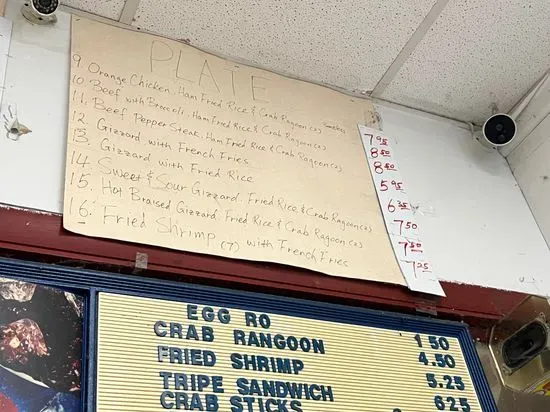 PLATE
9. Orange Chicken, Ham Fried Rice & Crab Ragoon (2) 7.95
10. Beef with Broccoli, Ham Fried Rice & Crab Ragoon (2) 8.50
11. Beef Pepper Steak, Ham Fried Rice & Crab Ragoon (2) 8.50
12. Gizzard with French Fries 5.95
13. Gizzard with Fried Rice 6.35
14. Sweet & Sour Gizzard, Fried Rice & Crab Ragoon (2) 7.50
15. Hot Braised Gizzard, Fried Rice & Crab Ragoon (2) 7.50
16. Fried Shrimp (7) with French Fries 7.25
EGG RO 1 50
CRAB RANGOON 4.50
FRIED SHRIMP 5.25
TRIPE SANDWICH 625
CRAB STICKS